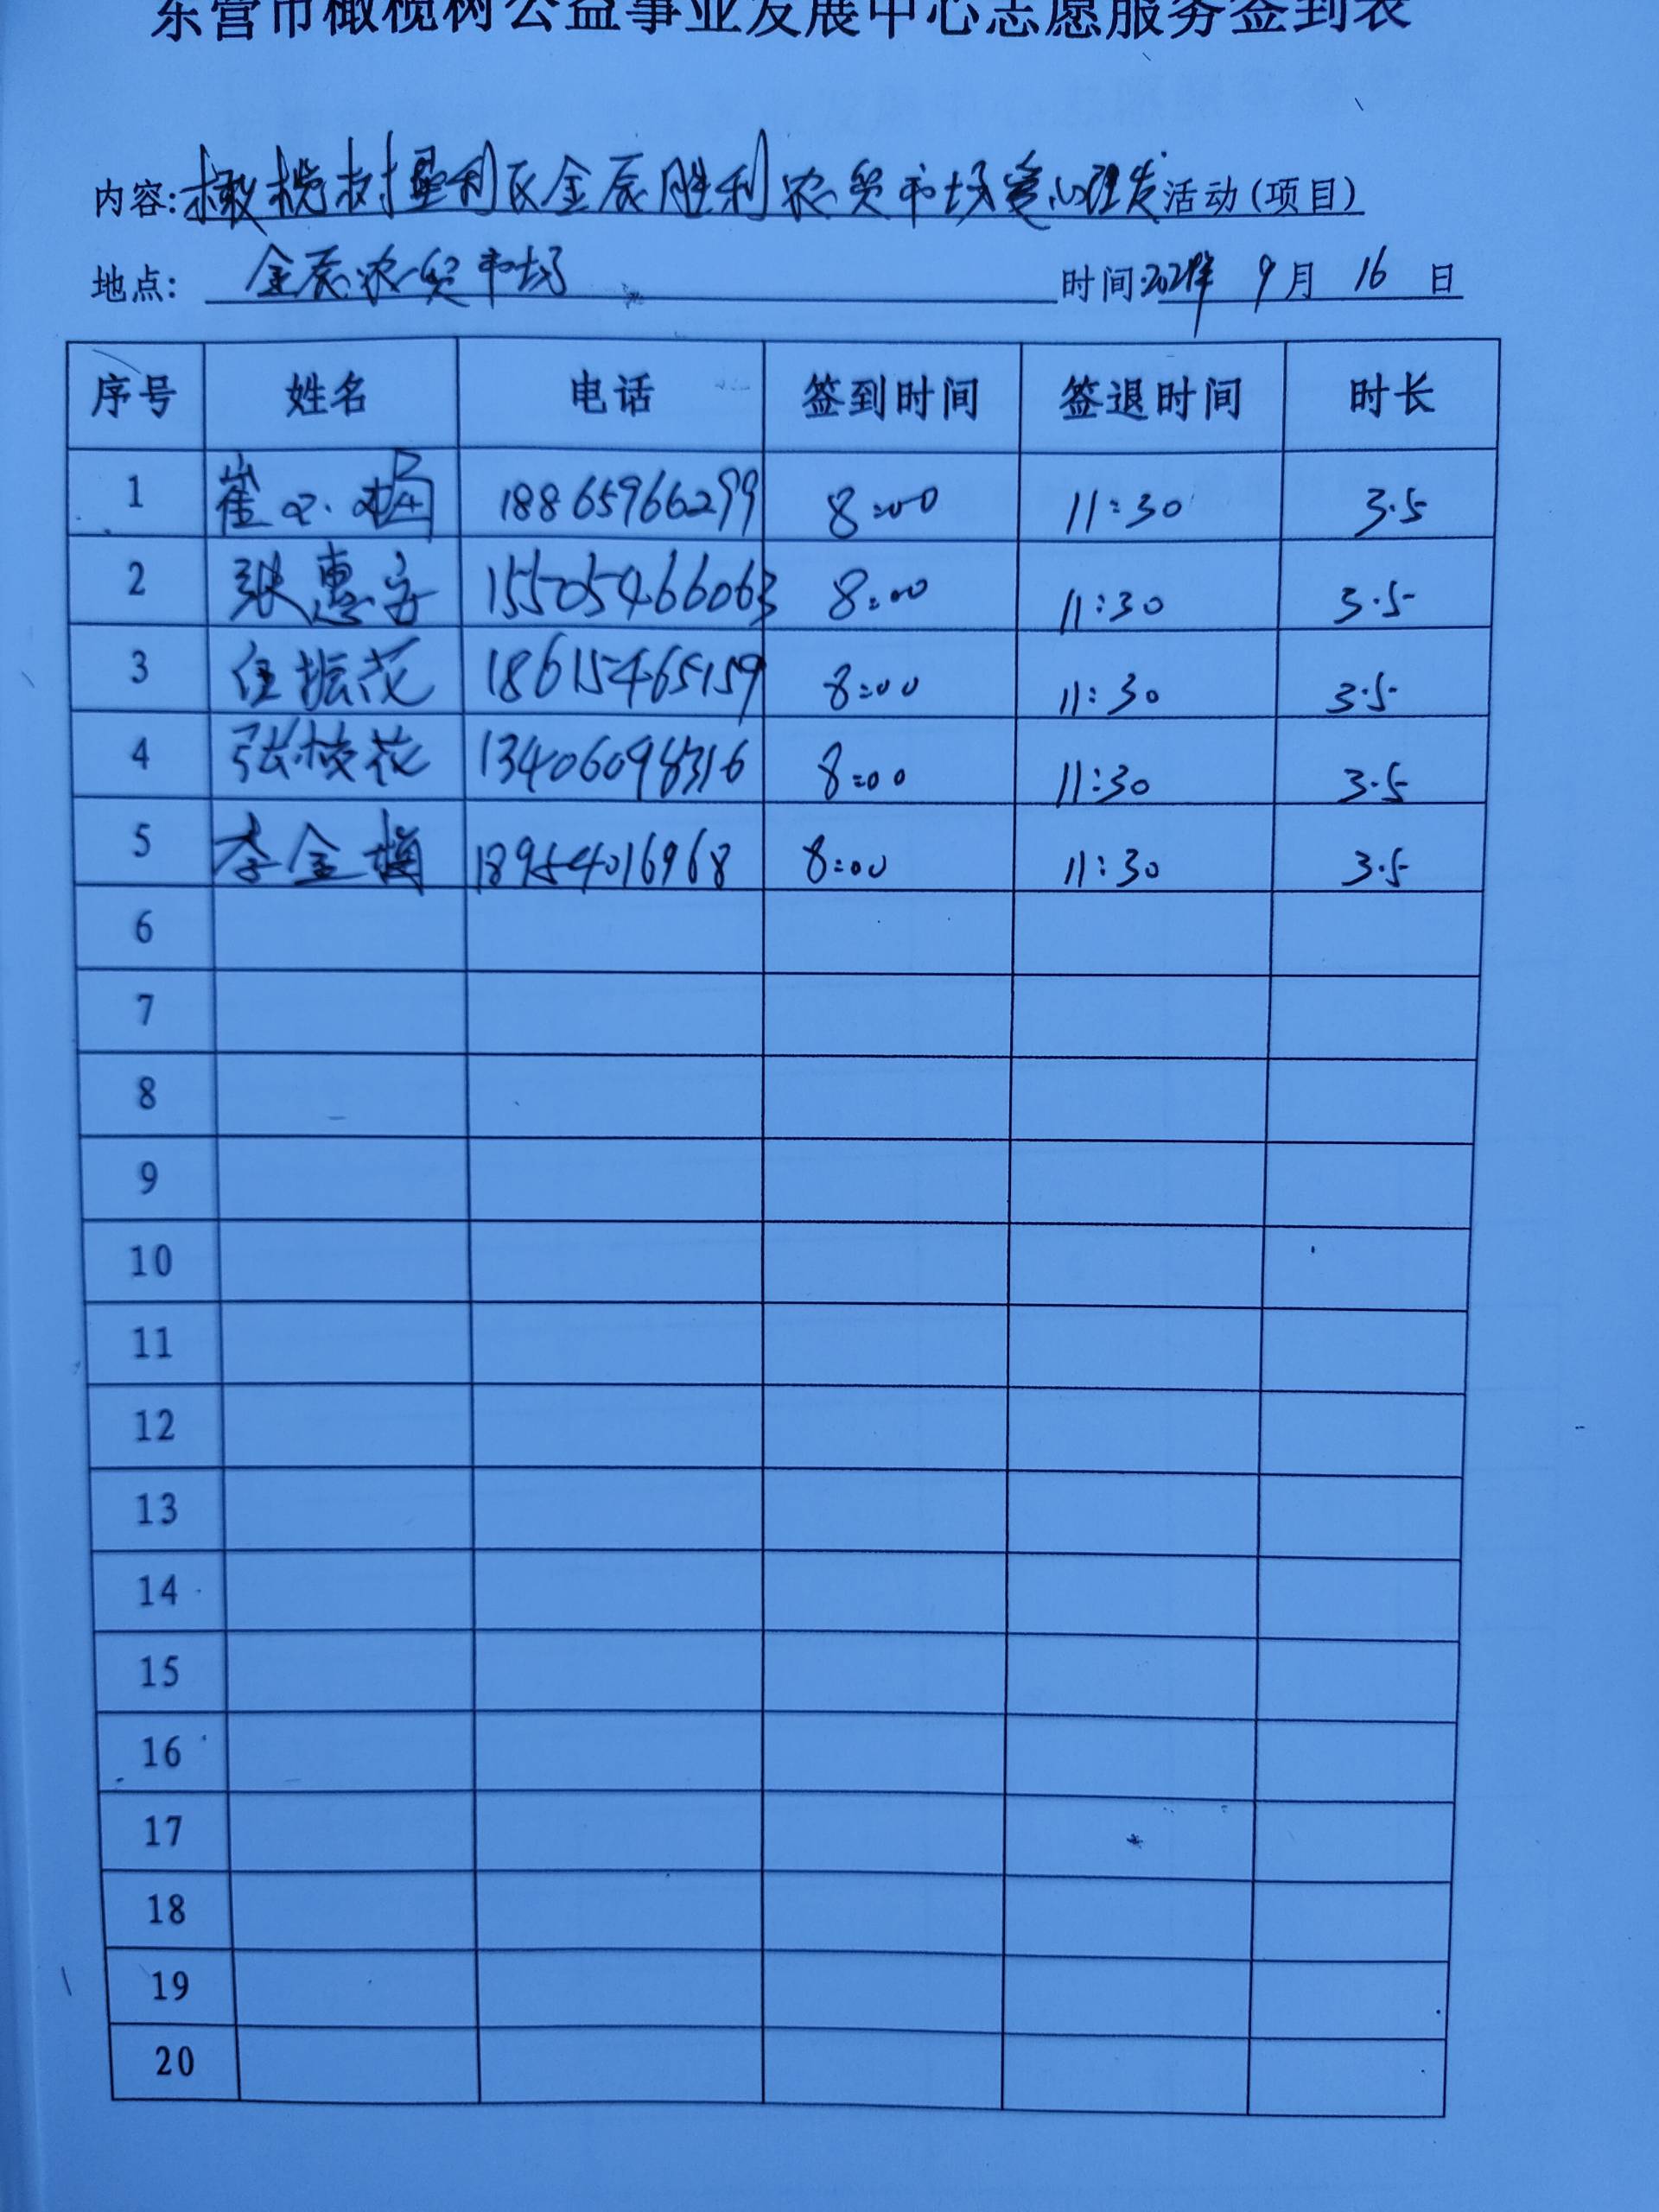 东营市橄榄树公益事业发展中心志愿服务签到表
内容:橄榄树垦利区金辰胜利农贸市场爱心理发活动(项目)
地点: 金辰农贸市场 时间:2024年 9月 16 日
序号 姓名 电话 签到时间 签退时间 时长
1 崔 18865966299 8:00 11:30 3.5
2 张惠 15505466063 8:00 11:30 3.5
3 任振花 18615465159 8:00 11:30 3.5
4 张枝花 13406098316 8:00 11:30 3.5
5 李金梅 18954016968 8:00 11:30 3.5
6
7
8
9
10
11
12
13
14
15
16
17
18
19
20